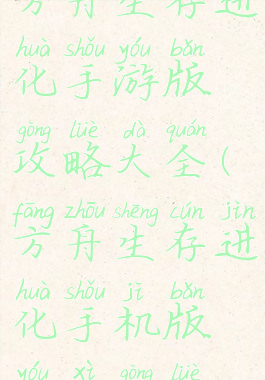 方舟生存进
huà shǒu yóu bǎn
化手游版
gōng lüè dà quán
攻略大全(
fāng zhōu shēng cún jìn
方舟生存进
huà shǒu jī bǎn
化手机版
yóu xì gōng lüè